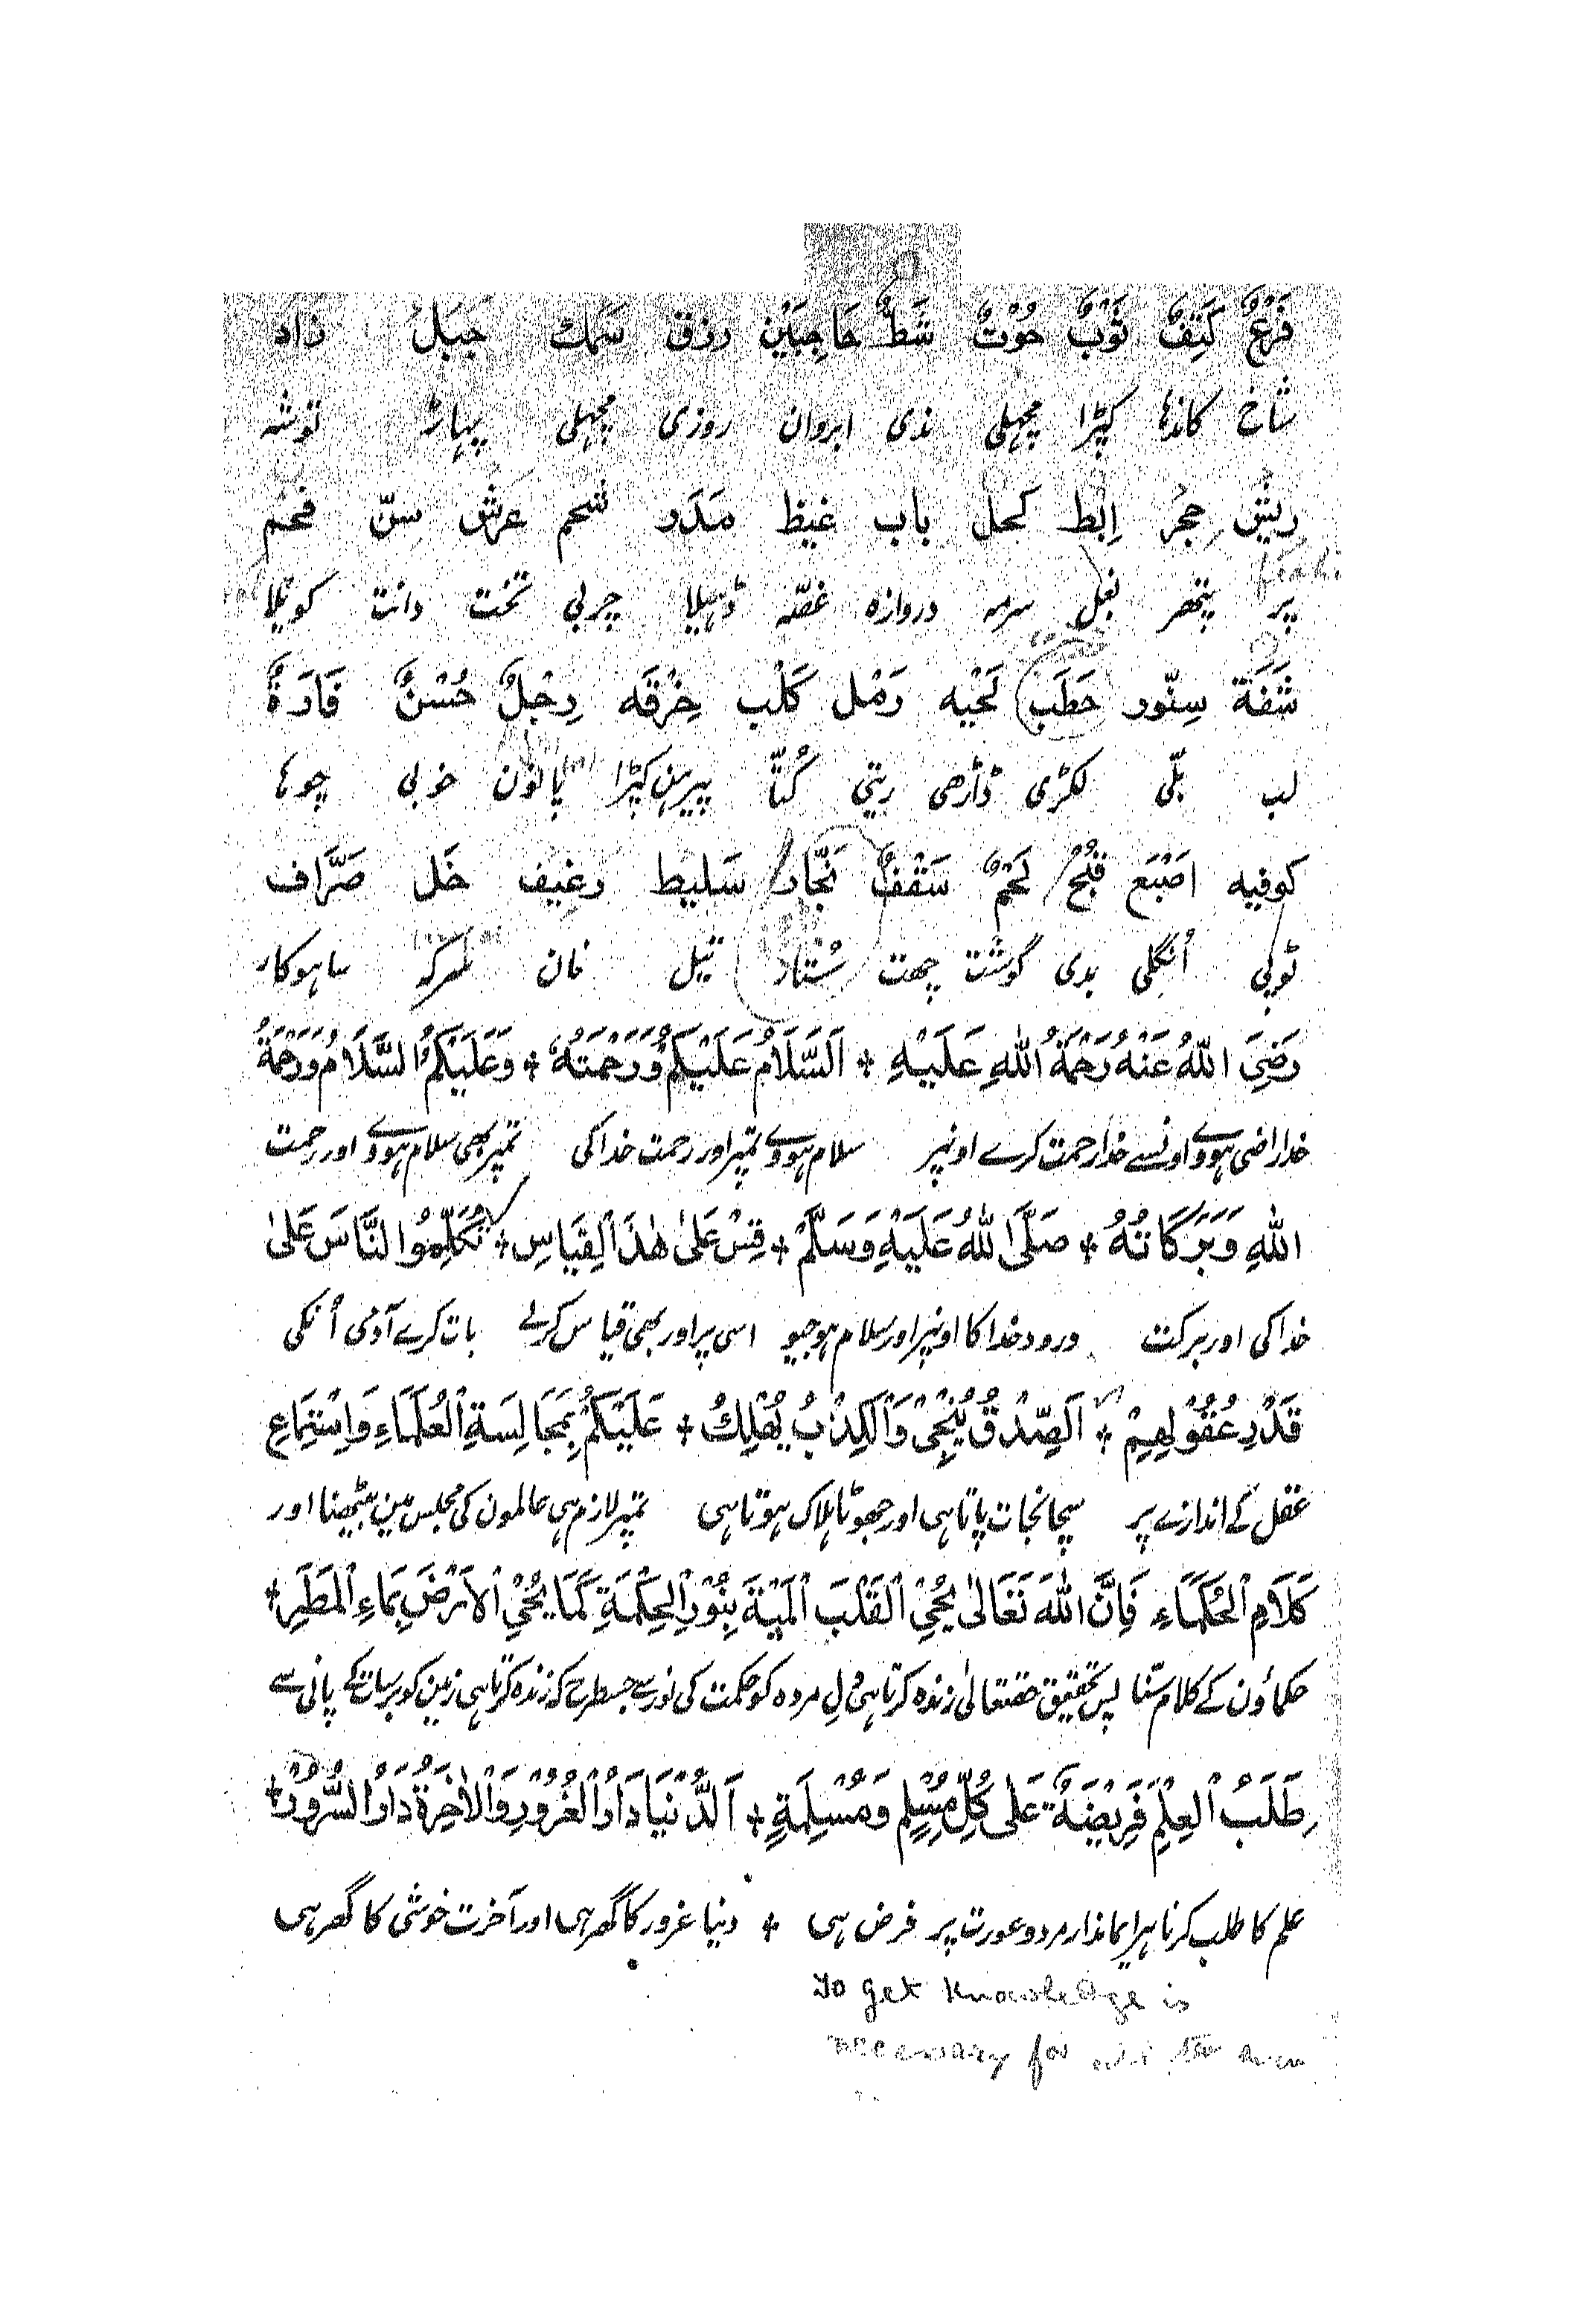 فَرْعٌ كَتِفٌ ثَوْبٌ حُوْتٌ شَطٌّ حَاجِبَيْن رزق سَمَك جَبَلُ زاد
شاخ كاندہا کپڑا مچہلی ندی ابروان روزی مچہلی پہاڑ توشہ
رِيش حِجُر اِبَط كحل باب غيظ مَدَر شحم عَرش سِنّ فحم
پر پتھر بغل سرمہ دروازہ غصّہ ڈہیلا چربی تخت دانت کویلا
شَفَة سِنّور حَطَب لَحْيه رَمْل كَلْب خِرْقَه رِجْلٌ حُسْنٌ فَارَةٌ
لب بلّی لکڑی ڈاڑھی ریتی کُتّا پیرہن کپڑا پانون خوبی چوہا
كوفيه اصْبَع قُبْحٌ لَحْمٌ سَقْفٌ نَجّار سَليط رغِيف خَل صَرَّاف
ٹوپی اُنگلی بدی گوشت چھت سُتار تیل نان سرکہ ساہوکار
رَضِىَ اللّٰهُ عَنْهُ رَحْمَةُ اللّٰهِ عَلَيْهِ + اَلسَّلَامُ عَلَيْكُمْ وَرَحْمَتَهُ + وَعَلَيْكُمُ السَّلَامُ وَرَحْمَةُ
خدا راضی ہووے اونسے خدا رحمت کرے اونپر سلام ہووے تمپر اور رحمت خدا کی تمپر بھی سلام ہووے اور رحمت
اللّٰهِ وَبَرَكَاتُهُ + صَلَّى اللّٰهُ عَلَيْهِ وَسَلَّمْ + قِسْ عَلىٰ هٰذَا الْقِيَاسِ + تُكَلِّمُوا النَّاسَ عَلىٰ
خدا کی اور برکت درود خدا کا اونپر اور سلام ہوجیو اسی پر اور بھی قیاس کرلے بات کرے آدمی اُنکی
قَدْرِ عُقُوْلِهِمْ + اَلصِّدْقُ يُنْجِىْ وَالْكِذْبُ يُهْلِكُ + عَلَيْكُمْ بِمَجَالِسَةِ الْعُلَمَاءِ وَاِسْتِمَاعِ
عقل کے اندازے پر سچا نجات پاتا ہی اور جھوٹا ہلاک ہوتا ہی تمپر لازم ہی عالمون کی مجلس مین بیٹھنا اور
كَلَامِ الْحُكَمَاءِ فَاِنَّ اللّٰهَ تَعَالىٰ يُحْىِ الْقَلْبَ الْمَيْتَةَ بِنُوْرِ الْحِكْمَةِ كَمَا يُحْىِ الْاَرْضَ بِمَاءِ الْمَطَرِ +
حکماؤن کے کلام سُنّا پس تحقیق حقتعالیٰ زندہ کرتا ہی دلِ مردہ کو حکمت کی نور سے جسطرح کہ زندہ کرتا ہی زمین کو برسات کے پانی سے
طَلَبُ الْعِلْمِ فَرِيْضَةٌ عَلىٰ كُلِّ مُسْلِمٍ وَمُسْلِمَةٍ + اَلدُّنْيَا دَارُ الْغُرُوْرِ وَالْاٰخِرَةُ دَارُ السُّرُوْرِ +
علم کا طلب کرنا ہر ایماندار مرد و عورت پر فرض ہی + دنیا غرور کا گھر ہی اور آخرت خوشی کا گھر ہی
To get knowledge is
necessary for